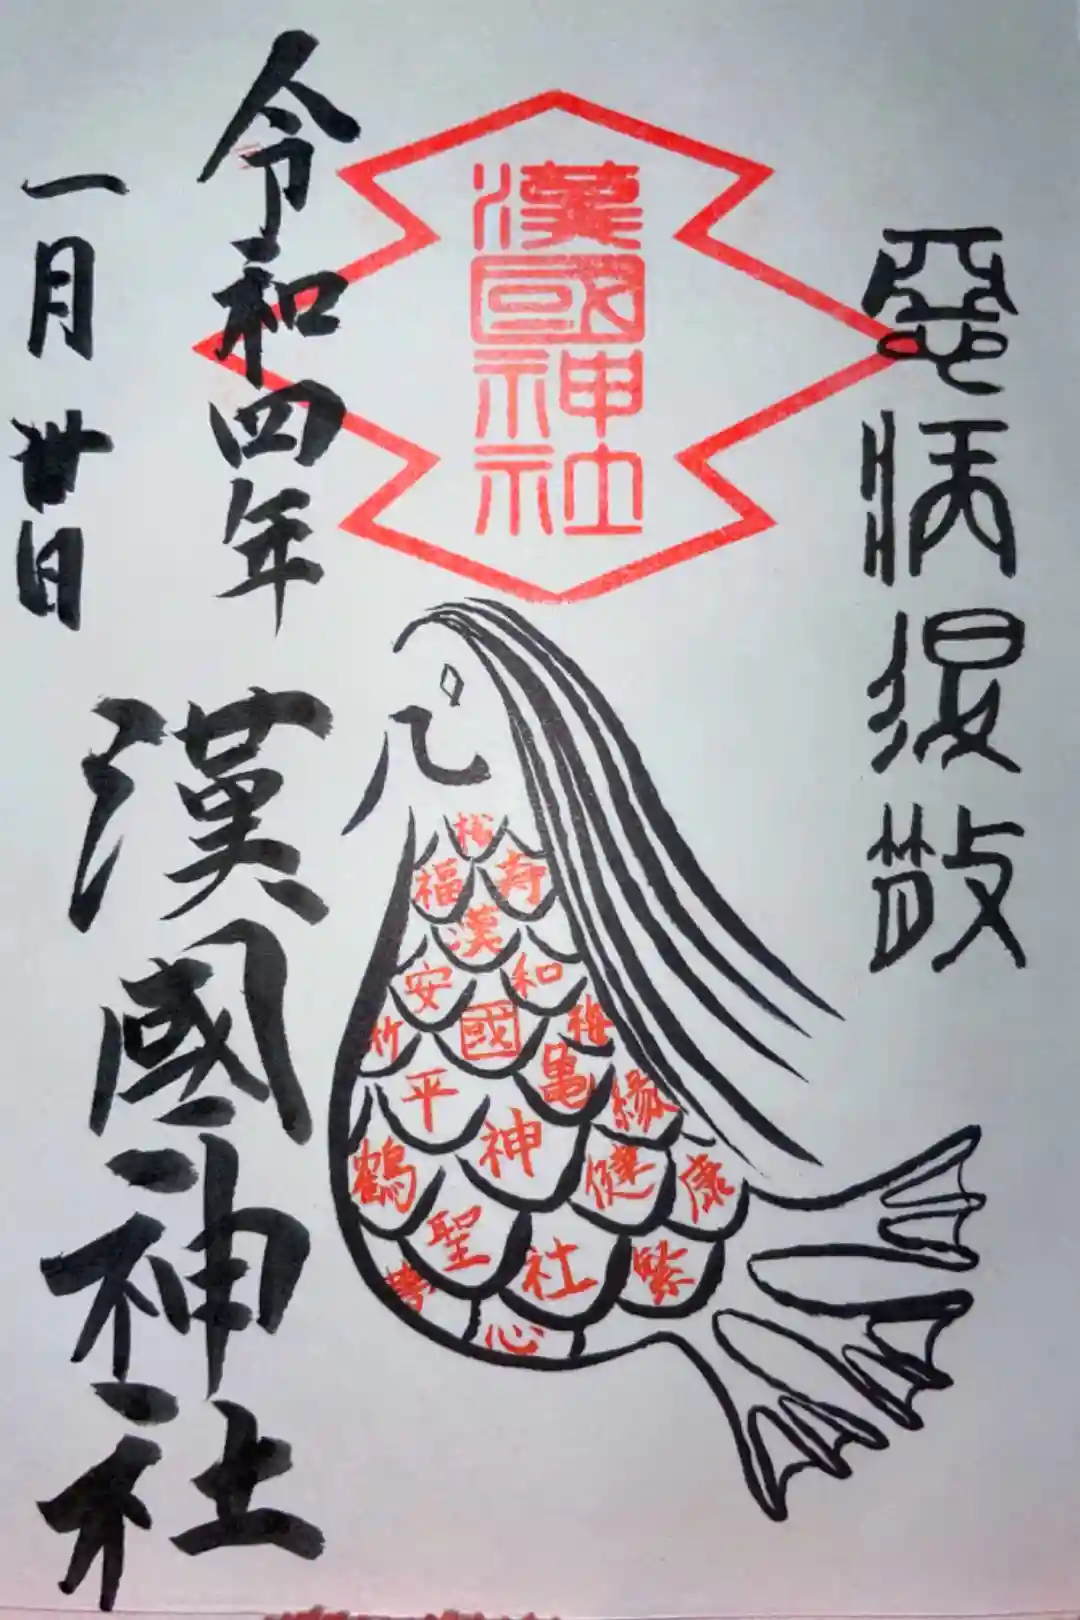 悪病退散
漢國神社
松
福
寿
漢
安
和
竹
國
梅
平
亀
縁
鶴
神
健
康
聖
社
繁
心
令和四年
一月廿日
漢國神社